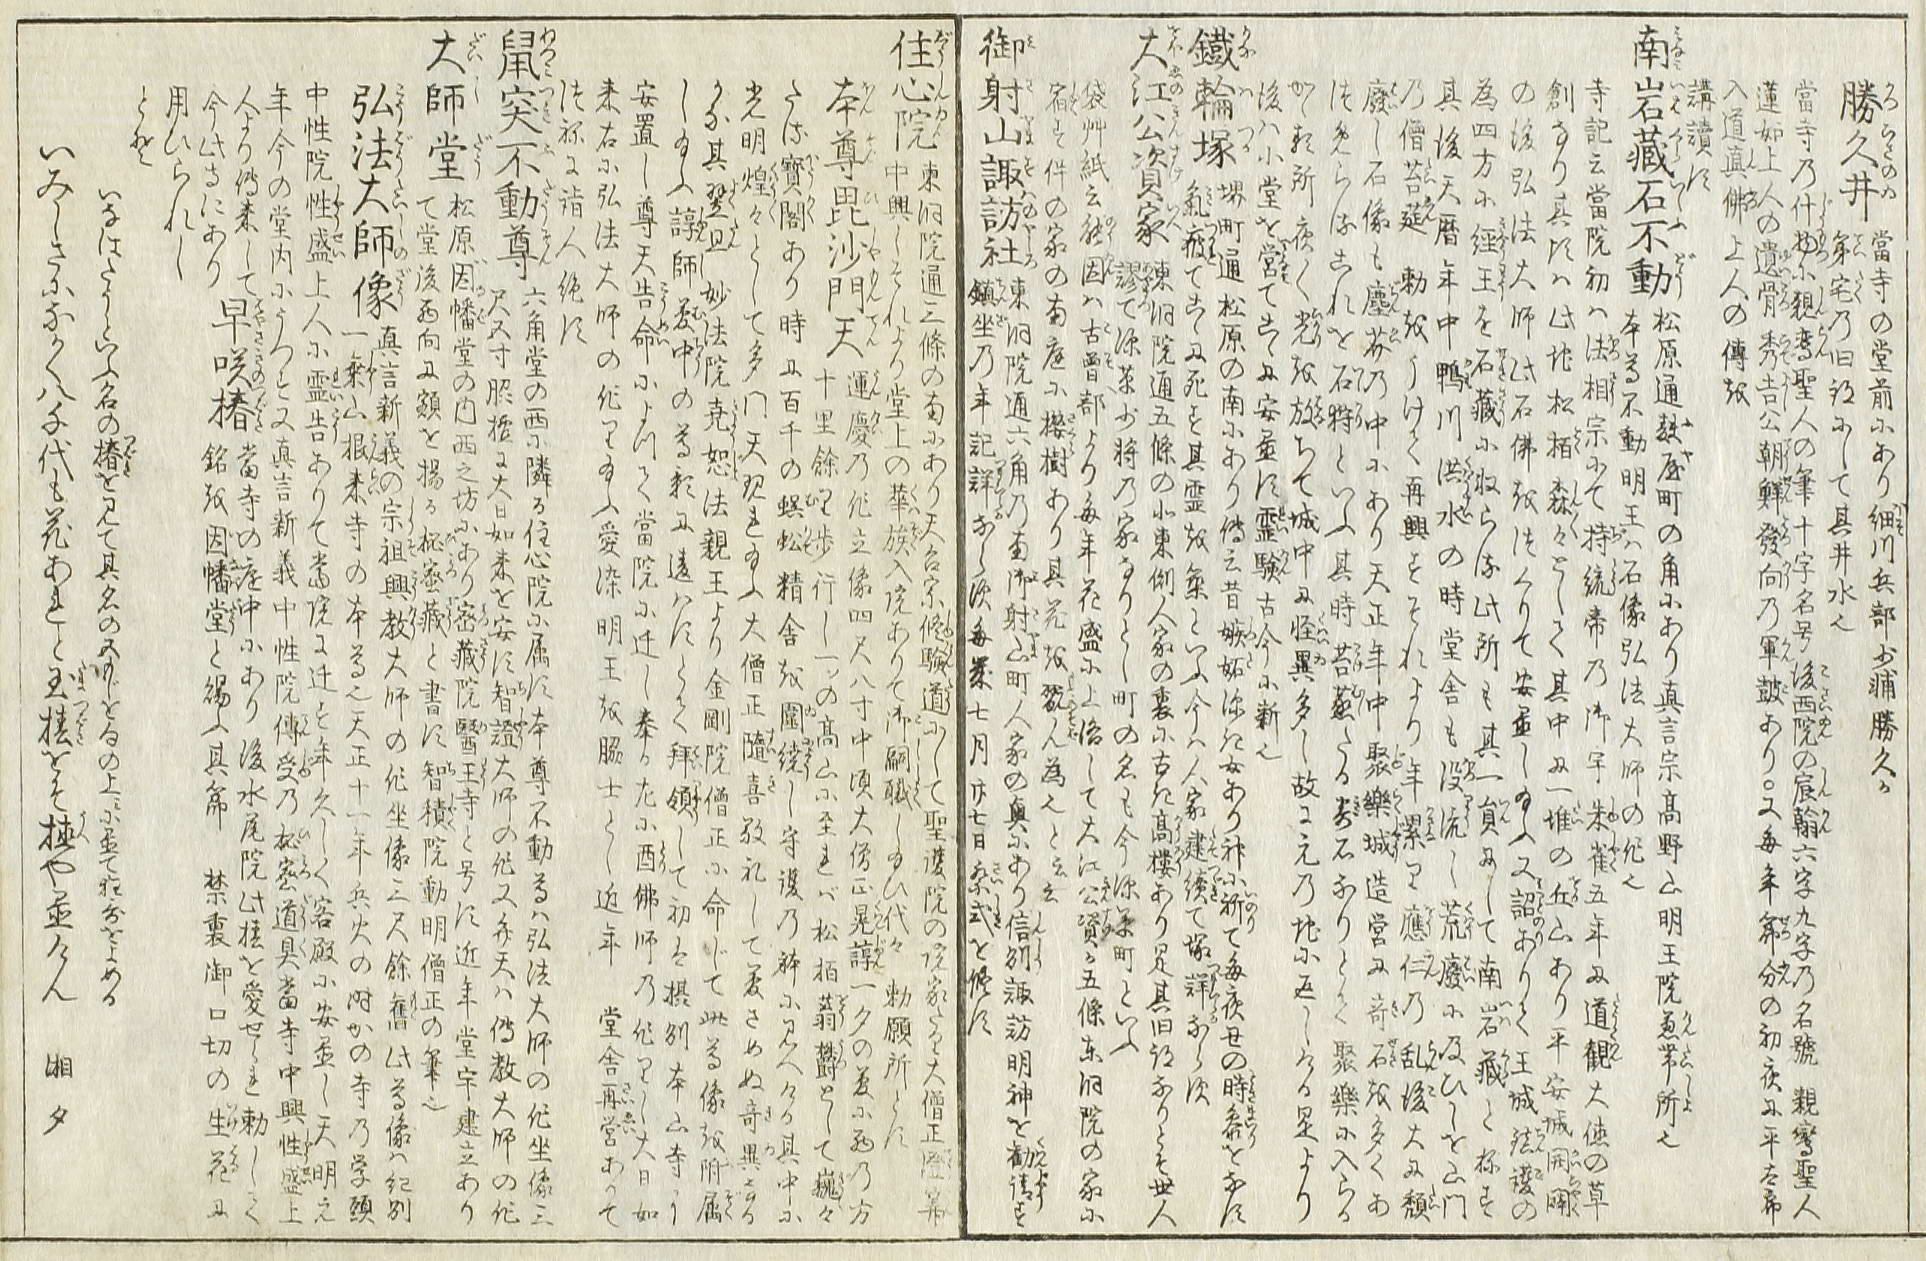 勝久井 當寺の堂前にあり細川兵部少輔勝久が
第宅の旧跡にして其井水也
當寺の什物に親鸞聖人の筆十字名号後西院の宸翰六字九字の名號 親鸞聖人
蓮如上人の遺骨秀吉公朝鮮發向の軍鼓あり○又毎年節分の初夜に平太郎
入道真佛上人の傳を
講讀す
南岩藏石不動 松原通麩屋町の角にあり真言宗高野山明王院兼帯所也
本尊不動明王ハ石像弘法大師の作也
寺記云當院初ハ法相宗にて持統帝の御宇朱雀五年に道観大徳の草
創なり其頃ハ此地松栢森々として其中に一堆の丘山あり平安城開闢
の後弘法大師此石佛を法くりて安置し給ふ又詔ありて王城法護の
為四方に經王を石藏に收らる此所も其一員にして南岩藏と称す
其後天暦年中鴨川洪水の時堂舎も没流し荒廢に及びしを山門
の僧苔莚 勅をうけて再興すそれより年累り應仁の乱後大に頽
廢し石像も塵芥の中にあり天正年中聚樂城造營に奇石を多くあ
法めらるこれを石狩といふ其時苔蒸たる岩石なりとて聚樂に入らる
かゝる所夜々光を放ちて城中に怪異多し故に元の地に返しける是より
後ハ小堂を営てこゝに安置す霊験古今に新也
鐵輪塚 堺町通松原の南にあり傳云昔嫉妬深き女あり神に祈て毎夜丑の時参をなす
氣疲てこゝに死を其霊を祭といふ今ハ人家建續て塚詳ならず
大江公資家 東洞院通五條の北東側人家の裏に古き高樓あり是其旧跡なりとそ世人
謬て源茶少将の家なりとし町の名も今源茶町といふ
袋艸紙云能因ハ古曽部より毎年花盛に上洛して大江公資が五條東洞院の家に
宿す件の家の南庭に櫻樹あり其花を翫ん為也と云云
御射山諏訪社 東洞院通六角の南御射山町人家の奥にあり信刕諏訪明神を勧請す
鎮坐の年記詳ならず毎歳七月廿七日祭式を修す
住心院 東洞院通三條の南にあり天台宗修驗道にして聖護院の院家たり大僧正
中興しそれより堂上の華族入院ありて御嗣職し給ひ代々 勅願所とす
本尊毘沙門天 運慶の作立像四尺八寸中頃大僧正晃諄一夕の夢に西の方
十里餘り歩行し一ツの高山に至れバ松栢蓊欝として巍々
たる寳閣あり時に百千の蜈蚣精舎を圍繞し守護の躰に見へける其中に
光明煌々として多門天現れ給ふ大僧正隨喜敬礼して夢さめぬ奇異なる
かな其翌旦妙法院堯恕法親王より金剛院僧正に命じて此尊像を附属
し給ふ諄師夢中の尊影に違ハずとて拜領して初ハ摂刕本山寺に
安置し尊天告命によつて當院に迁し奉る左に酉佛師の作りし大日如
来右に弘法大師の作り給ふ愛染明王を脇士とし近年 堂舎再営あつて
法称に詣人絶ず
鼠突不動尊 六角堂の西に隣る住心院に属す本尊不動尊ハ弘法大師の作坐像三
尺又寸脇檀に大日如来を安す智證大師の作又弁天ハ傳教大師の作
大師堂 松原因幡堂の内西之坊にあり密藏院醫王寺と号す近年堂宇建立あり
て堂後西向に額を掲る秘密藏と書す智積院動明僧正の筆也
弘法大師像 真言新義の宗祖興教大師の作坐像三尺餘舊此尊像ハ紀刕
一乗山根来寺の本尊也天正十一年兵火の時かの寺の学頭
中性院性盛上人に霊告ありて當院に迁を年久しく客殿に安置し天明元
年今の堂内にうつす又真言新義中性院傳受の秘密道具當寺中興性盛上
人より傳来して
今此寺にあり
早咲椿 當寺の庭中にあり後水尾院此椿を愛せられ勅して
銘を因幡堂と賜ふ其節 禁裏御口切の生花に
用ひられし
とぞ
いなばだうといふ名の椿を見て其名の文字をるの上に並て狂哥をよめる
いみしさに分かく八千代も花あれと玉椿をそ植や並けん 湘夕